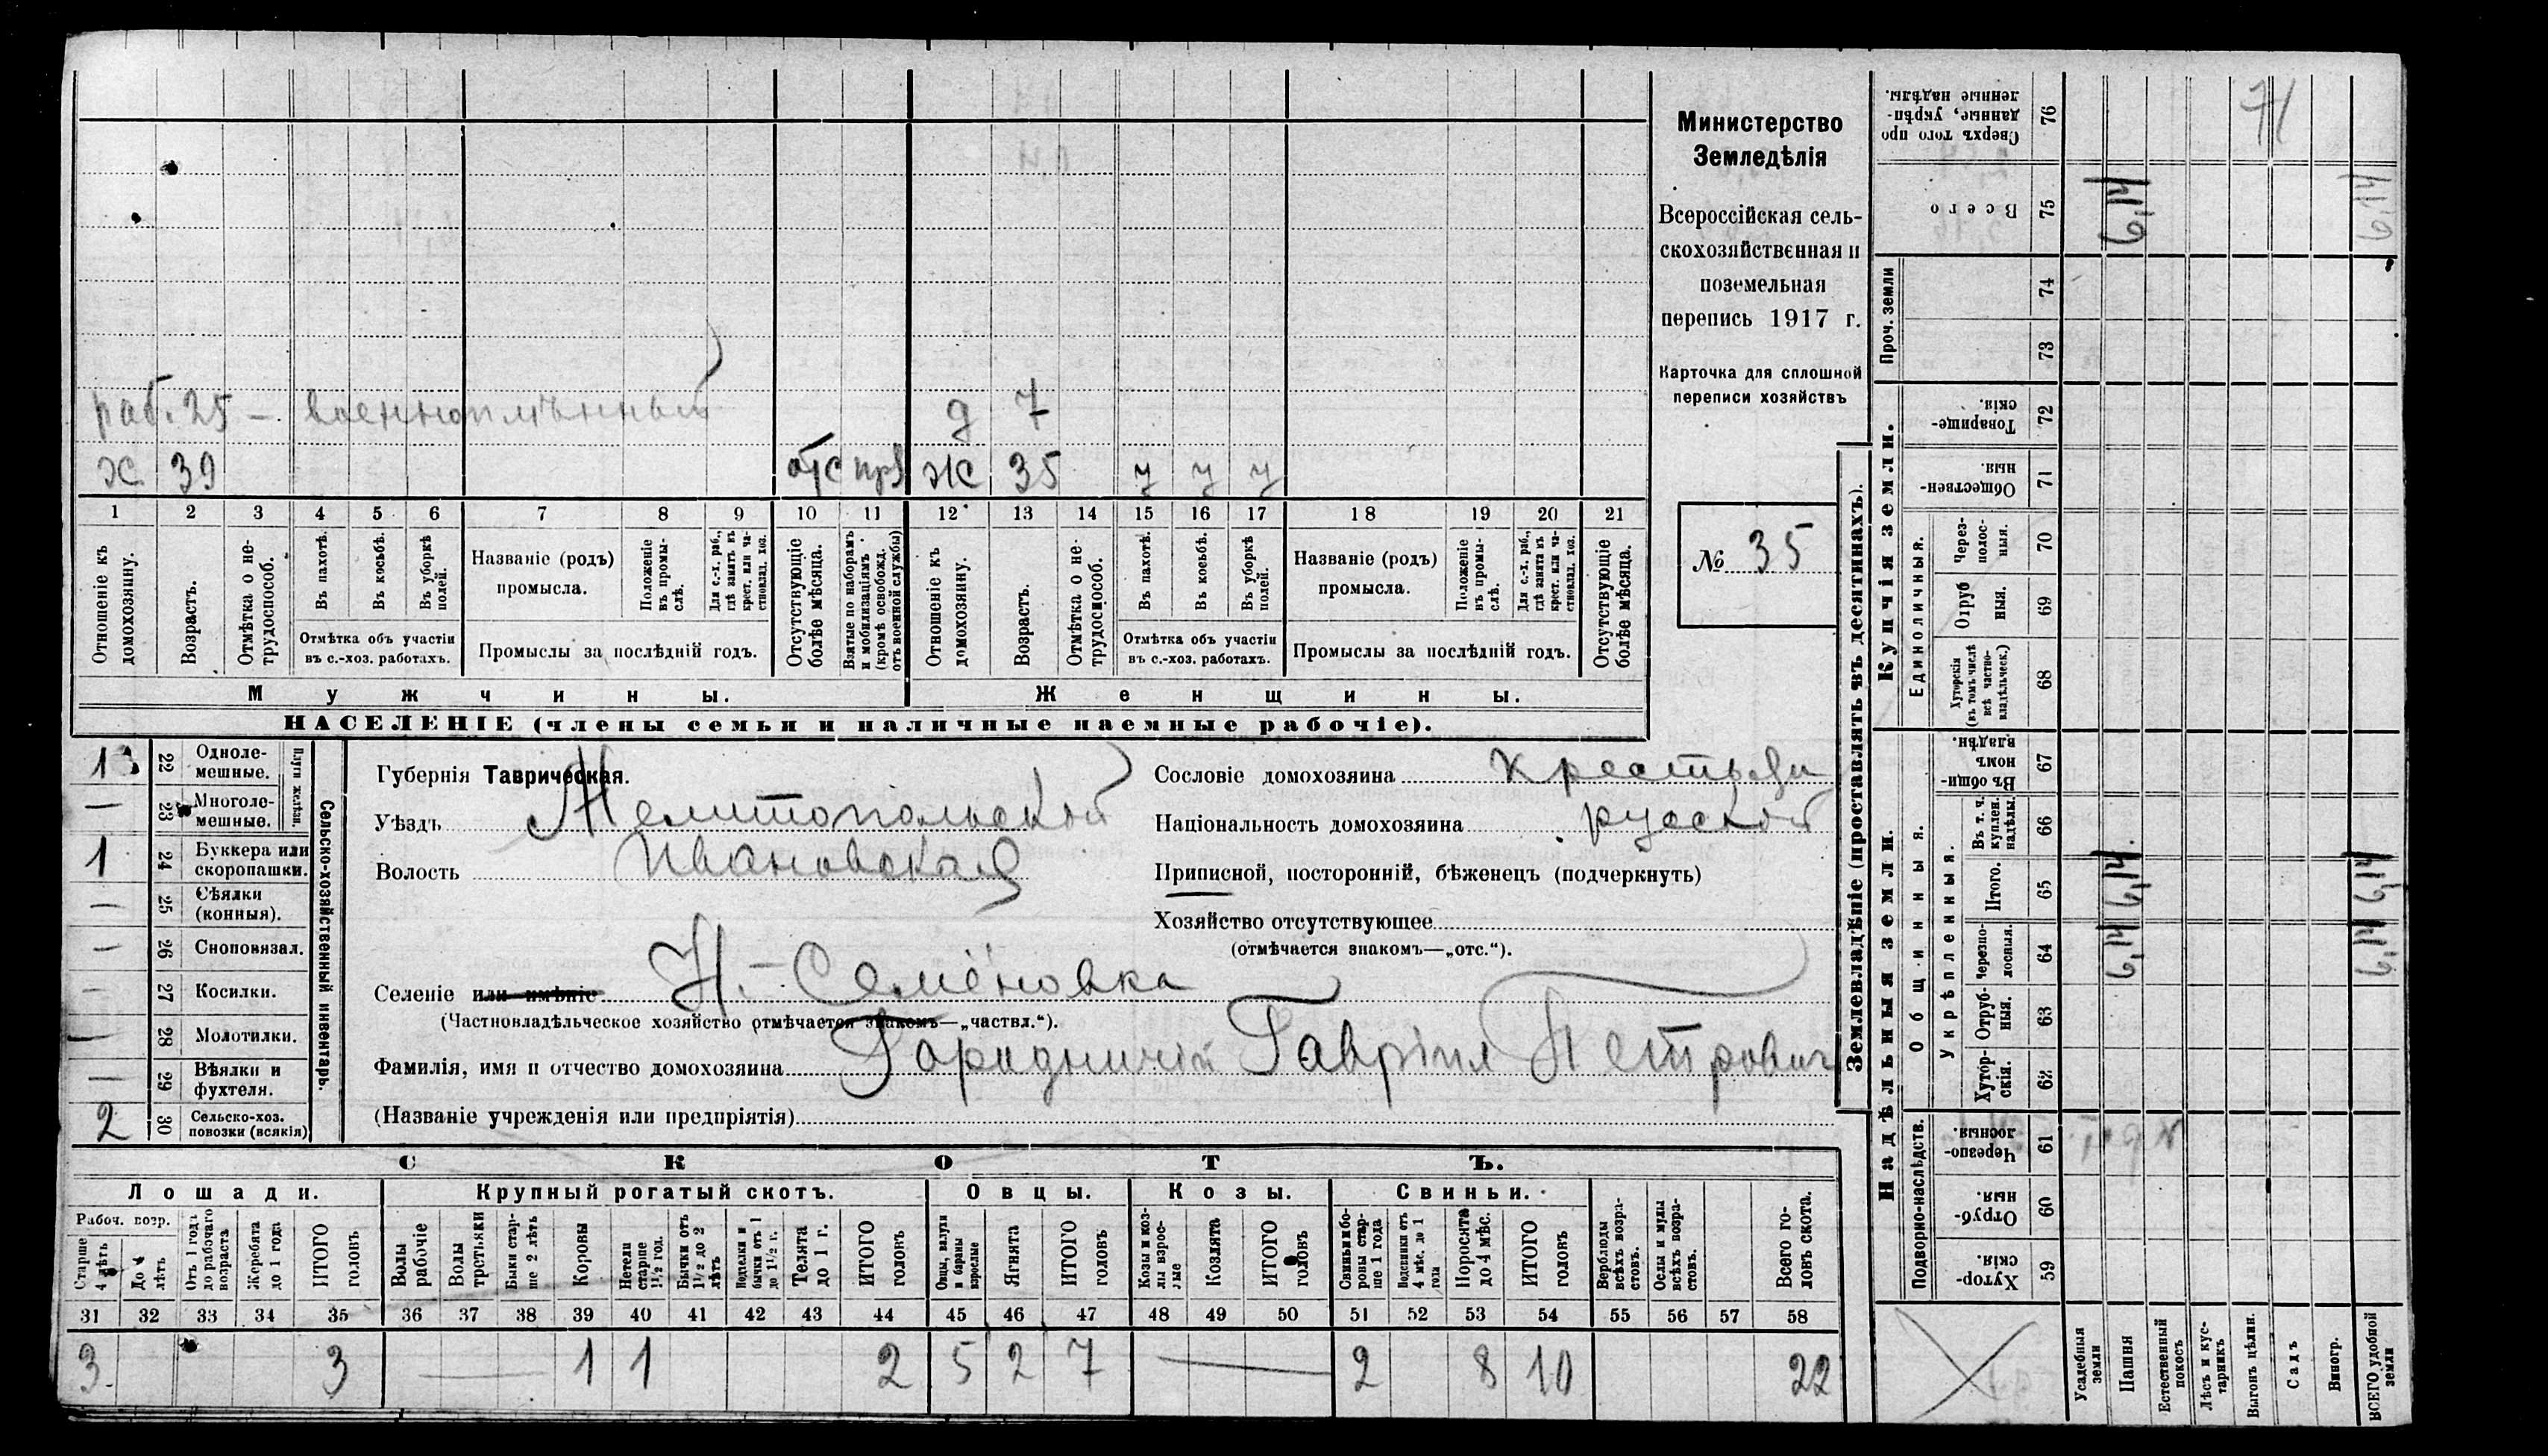 раб. 25 — военноплѣнный
д 7
х 39 отс
ж 35 у у у
1 2 3 4 5 6 7 8 9 10 11 12 13 14 15 16 17 18 19 20 21
Отношеніе къ домохозяину.
Возрастъ.
Отмѣтка о не-трудоспособ.
Въ пахотѣ.
Въ косьбѣ.
Въ уборкѣ полей.
Отмѣтка объ участіи
въ с.-хоз. работахъ.
Названіе (родъ)
промысла.
Положеніе въ промы-слѣ.
Для с.-х. раб., гдѣ занятъ въ крест. или ча-стновлад. хоз.
Промыслы за послѣдній годъ.
Отсутствующіе болѣе мѣсяца.
Взятые по наборамъ и мобилизаціямъ (кромѣ освобожд. отъ военной службы)
Отношеніе къ домохозяину.
Возрастъ.
Отмѣтка о не-трудоспособ.
Въ пахотѣ.
Въ косьбѣ.
Въ уборкѣ полей.
Отмѣтка объ участіи
въ с.-хоз. работахъ.
Названіе (родъ)
промысла.
Положеніе въ промы-слѣ.
Для с.-х. раб., гдѣ занятъ въ крест. или ча-стновлад. хоз.
Промыслы за послѣдній годъ.
Отсутствующіе болѣе мѣсяца.
Мужчины. Женщины.
НАСЕЛЕНІЕ (члены семьи и наличные наемные рабочіе).
Министерство
Земледѣлія
Всероссійская сель-
скохозяйственная и
поземельная
перепись 1917 г.
Карточка для сплошной
переписи хозяйствъ
№ 35
Сельско-хозяйственный инвентарь.
Плуги желѣзн.
1 22 Одноле-мешные.
— 23 Многоле-мешные.
1 24 Буккера или скоропашки.
— 25 Сѣялки (конныя).
— 26 Сноповязал.
— 27 Косилки.
— 28 Молотилки.
— 29 Вѣялки и фухтеля.
2 30 Сельско-хоз. повозки (всякія)
Губернія Таврическая.
Уѣздъ Мелитопольскій
Волость Ивановская
Селеніе или имѣніе Н.-Семёновка
(Частновладѣльческое хозяйство отмѣчается знакомъ—„частвл.“).
Фамилія, имя и отчество домохозяина Гавріил Петрович
(Названіе учрежденія или предпріятія)
Сословіе домохозяина
Національность домохозяина русской
Приписной, посторонній, бѣженецъ (подчеркнуть)
Хозяйство отсутствующее
(отмѣчается знакомъ—„отс.“).
СКОТЪ.
Лошади. Крупный рогатый скотъ. Овцы. Козы. Свиньи.
Рабоч. возр.
Старше 4 лѣтъ
До 4 лѣтъ
Отъ 1 года до рабочаго возраста
Жеребята до 1 года
ИТОГО головъ
Волы рабочіе
Волы третьяки
Быки стар-ше 2 лѣтъ
Коровы
Нетели старше 1½ год.
Бычки отъ 1½ до 2 лѣтъ
Телята до 1 г.
ИТОГО головъ
Овцы, валухи и бараны взрослые
Ягнята
ИТОГО головъ
Козы и коз-лы взрос-лые
Козлята
ИТОГО головъ
Свиньи и бо-ровы стар-ше 1 года
Подсвинки отъ 4 мѣс. до 1 года
Поросята до 4 мѣс.
ИТОГО головъ
Верблюды всѣхъ возра-стовъ.
Ослы и мулы всѣхъ возра-стовъ.
Всего го-ловъ скота.
31 32 33 34 35 36 37 38 39 40 41 42 43 44 45 46 47 48 49 50 51 52 53 54 55 56 57 58
3 3 — 1 1 2 5 2 7 — 2 8 10 22
Землевладѣніе (проставлять въ десятинахъ).
Купчія земли.
Надѣльныя земли.
Сверхъ того про данные, укрѣп-ленные надѣлы. 76 71
Всего 75 6,14 6,14
Проч. земли 74
73
Товарище-скія. 72
Обществен-ныя. 71
Единоличныя.
Через-полос-ныя. 70
Отруб ныя. 69
Хуторскія (въ томъ числѣ всѣ частно-владѣльческ.) 68
Общинныя.
Въ общи-номъ владѣн. 67
Укрѣпленныя.
Въ т. ч. куплен. надѣлы. 66
Итого. 65 6,14 6,14
Черезпо-лосныя. 64 6,14 6,14
Отруб-ныя. 63
Хутор-скія. 62
Подворно-наслѣдств.
Черезпо-лосныя. 61
Отруб-ныя. 60
Хутор-скія. 59
Усадебныя земли
Пашня
Естественный покосъ
Лѣсъ и кус-тарникъ
Выгонъ цѣлин.
Садъ
Виногр.
ВСЕГО удобной земли